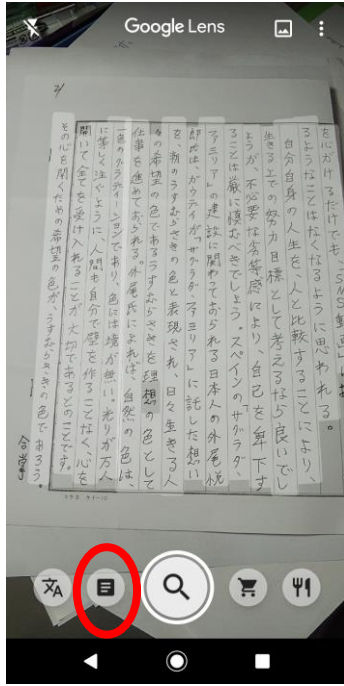 Google Lens
2/
を心がけるだけでも、SNS動画に
るようなことはなくなるように思われる。
自分自身の人生を、人と比較することにより、
生きる上での努力目標として考えるなら良いでし
ょうが、不必要な劣等感により、自己を卑下す
ることは厳に慎むべきでしょう。スペインのサグラダ、
ファミリア」の建設に関わっておられる日本人の外尾悦
郎氏は、ガウディが「サグラダファミリア」に託した想い
を、朝のうすむらさきの色と表現され、日々生きる人
々の希望の色であるうすむらさきを理想の色として
仕事を進めておられる。外尾氏によれば、自然の色は、
一色のグラデーションであり、色には境が無い。光りが万人
に等しく注ぐように、人間も自分で壁を作ることなく、心を
開いて全てを受け入れることが大切であるとのことです。
その心を開くための希望の色が、うすむらさきの色であろう。
合掌